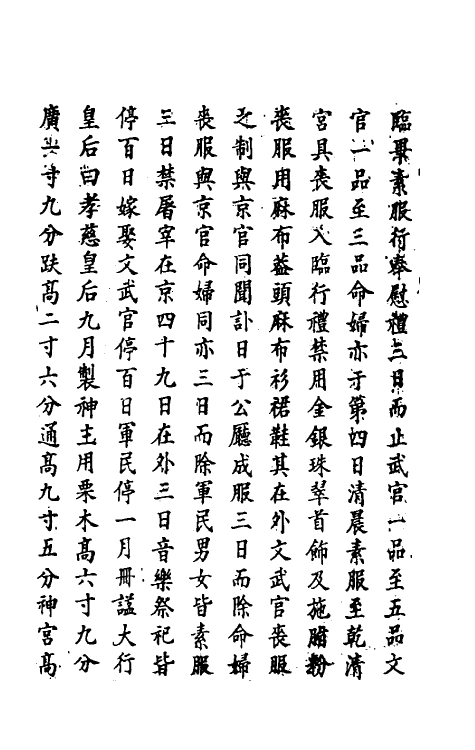 臨畢素服行奉慰禮三日而止武官一品至五品文
官一品至三品命婦亦于第四日清晨素服至乾清
宮具喪服入臨行禮禁用金銀珠翠首飾及施脂粉
喪服用麻布蓋頭麻布衫裙鞋其在外文武官喪服
之制與京官同聞訃日于公廳成服三日而除命婦
喪服與京官命婦同亦三日而除軍民男女皆素服
三日禁屠宰在京四十九日在外三日音樂祭祀皆
停百日嫁娶文武官停百日軍民停一月冊諡大行
皇后曰孝慈皇后九月製神主用栗木高六寸九分
廣共寸九分趺高二寸六分通高九寸五分神宮高